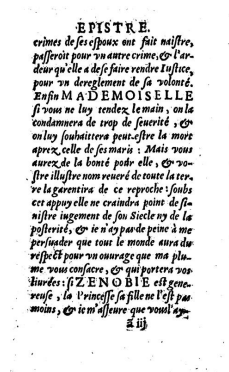 EPISTRE.
crimes de ses espoux ont fait naistre,
passeroit pour vn autre crime, & l'ar-
deur qu'elle a de se faire rendre Iustice,
pour vn dereglement de sa volonté.
Enfin MADEMOISELLE
si vous ne luy tendez le main, on la
condamnera de trop de seuerité, &
on luy souhaittera peut-estre la mort
aprez celle de ses maris : Mais vous
aurez de la bonté pour elle, & vo-
stre illustre nom reueré de toute la ter-
re la garentira de ce reproche : soubs
cet appuy elle ne craindra point de si-
nistre iugement de son Siecle ny de la
posterité, & ie n'ay pas de peine à me
persuader que tout le monde aura du
respect pour vn ouurage que ma plu-
me vous consacre, & qui portera vos
liurées : si ZENOBIE est gene-
reuse, la Princesse sa fille ne l'est pas
moins, & ie m'asseure que vous l'ay-
ã iij